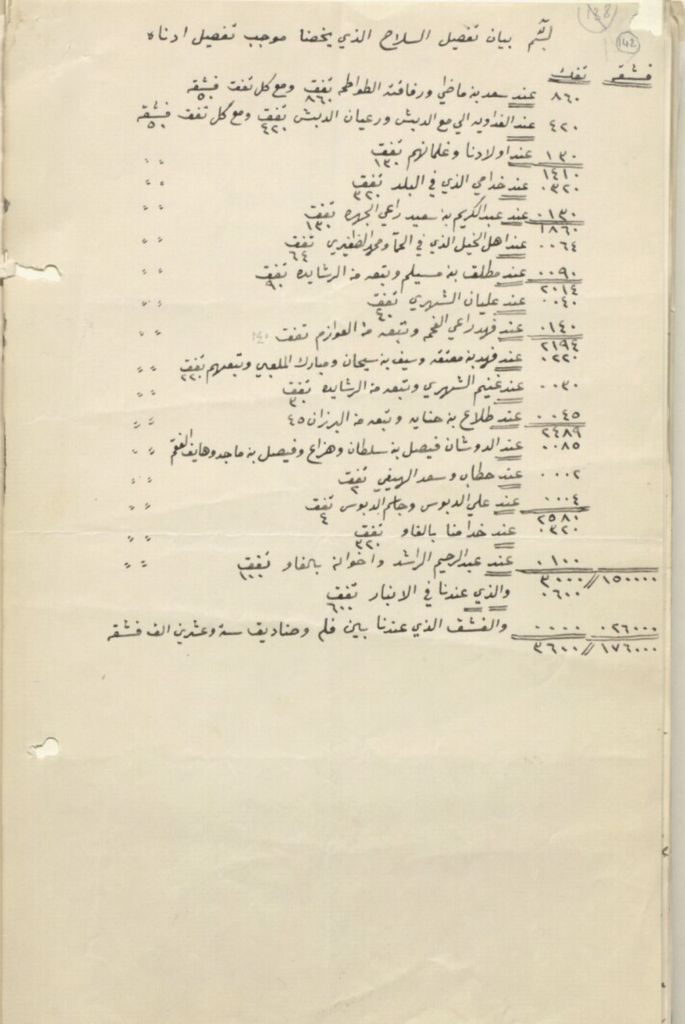 142
بيان تفصيل السلاح الذي يخصنا موجب تفصيل ادناه
فشقه تفك
٨٦٠ عند سعد بن ماضي ورفاقته الطواطحه تفق ٨٦٠ ومع كل تفق فشقه ٥٠
٤٢٠ عند الفداويه الي مع الدبش ورعيان الدبش تفق ٤٢٠ ومع كل تفق فشقه ٥٠
١٣٠ عند اولادنا وغلمانهم تفق ١٣٠ " "
١٤١٠
٠٣٢٠ عند خدامي الذي في البلد تفق ٣٢٠ " "
٠١٣٠ عند عبدالكريم بن سعيد راعي الجهره تفق ١٣٠ " "
١٨٦٠
٠٠٦٤ عند اهل الخيل الذي في الحمآ ومحمد الظفيري تفق ٦٤ " "
٠٠٩٠ عند مطلق بن مسيلم وتبعه من الرشايده تفق ٩٠ " "
٢٠١٤
٠٠٤٠ عند عليان الشهري تفق ٤٠ " "
٠١٤٠ عند فهد راعي الفحم وتبعه من العوازم تفق ١٤٠ " "
٢١٩٤
٠٢٢٠ عند فهد بن معتقه وسيف بن سيحان ومبارك الملعبي وتبعهم تفق ٢٢٠ " "
٠٠٣٠ عند غنيم الشهري وتبعه من الرشايده تفق ٣٠ " "
٠٠٤٥ عند طلاع بن حنايه وتبعه من البرزان ٤٥ " "
٢٤٨٩
٠٠٨٥ عند الدوشان فيصل بن سلطان وهزاع وفيصل بن ماجد وهايف الفغم
٠٠٠٢ عند حطاب وسعد الهيفي تفق ٢ " "
٠٠٠٤ عند علي الدبوس وجاسم الدبوس تفق ٤ " "
٢٥٨٠
٠٣٢٠ عند خدامنا بالفاو تفق ٣٢٠ " "
٠١٠٠ عند عبدالرحيم الراشد واخوانه بالفاو تفق ١٠٠ " "
١٥٠٠٠٠ // ٣٠٠٠
٠٦٠٠ والذي عندنا في الانبار تفق ٦٠٠
٠٢٦٠٠٠ ٠٠٠٠ والفشق الذي عندنا بين فلم وصناديق ستة وعشرين الف فشقه
١٧٦٠٠٠ // ٣٦٠٠